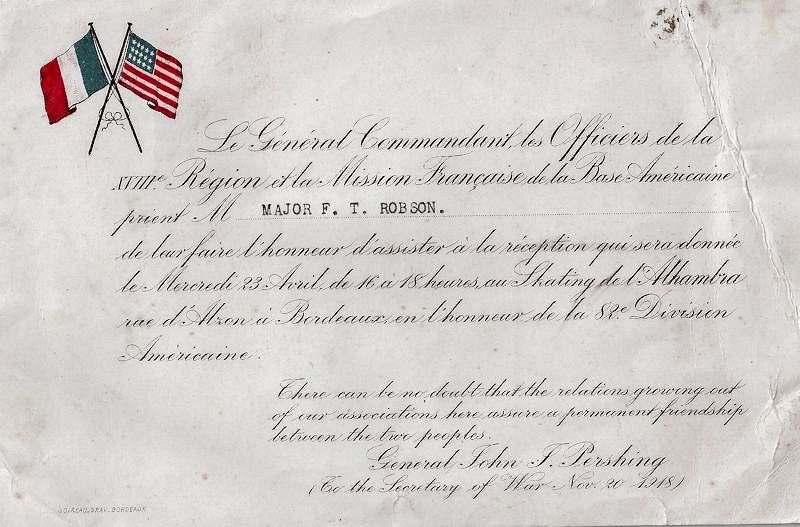 Le Général Commandant, les Officiers de la
XVIIIe Région et la Mission Française de la Base Américaine
prient M MAJOR F. T. ROBSON.
de leur faire l'honneur d'assister à la réception qui sera donnée
le Mercredi 23 Avril, de 16 à 18 heures, au Skating de l'Alhambra
rue d'Alzon à Bordeaux, en l'honneur de la 82e Division
Américaine.
There can be no doubt that the relations growing out
of our associations here assure a permanent friendship
between the two peoples.
General John J. Pershing
(To the Secretary of War Nov. 20 1918)
GRAV. BORDEAUX